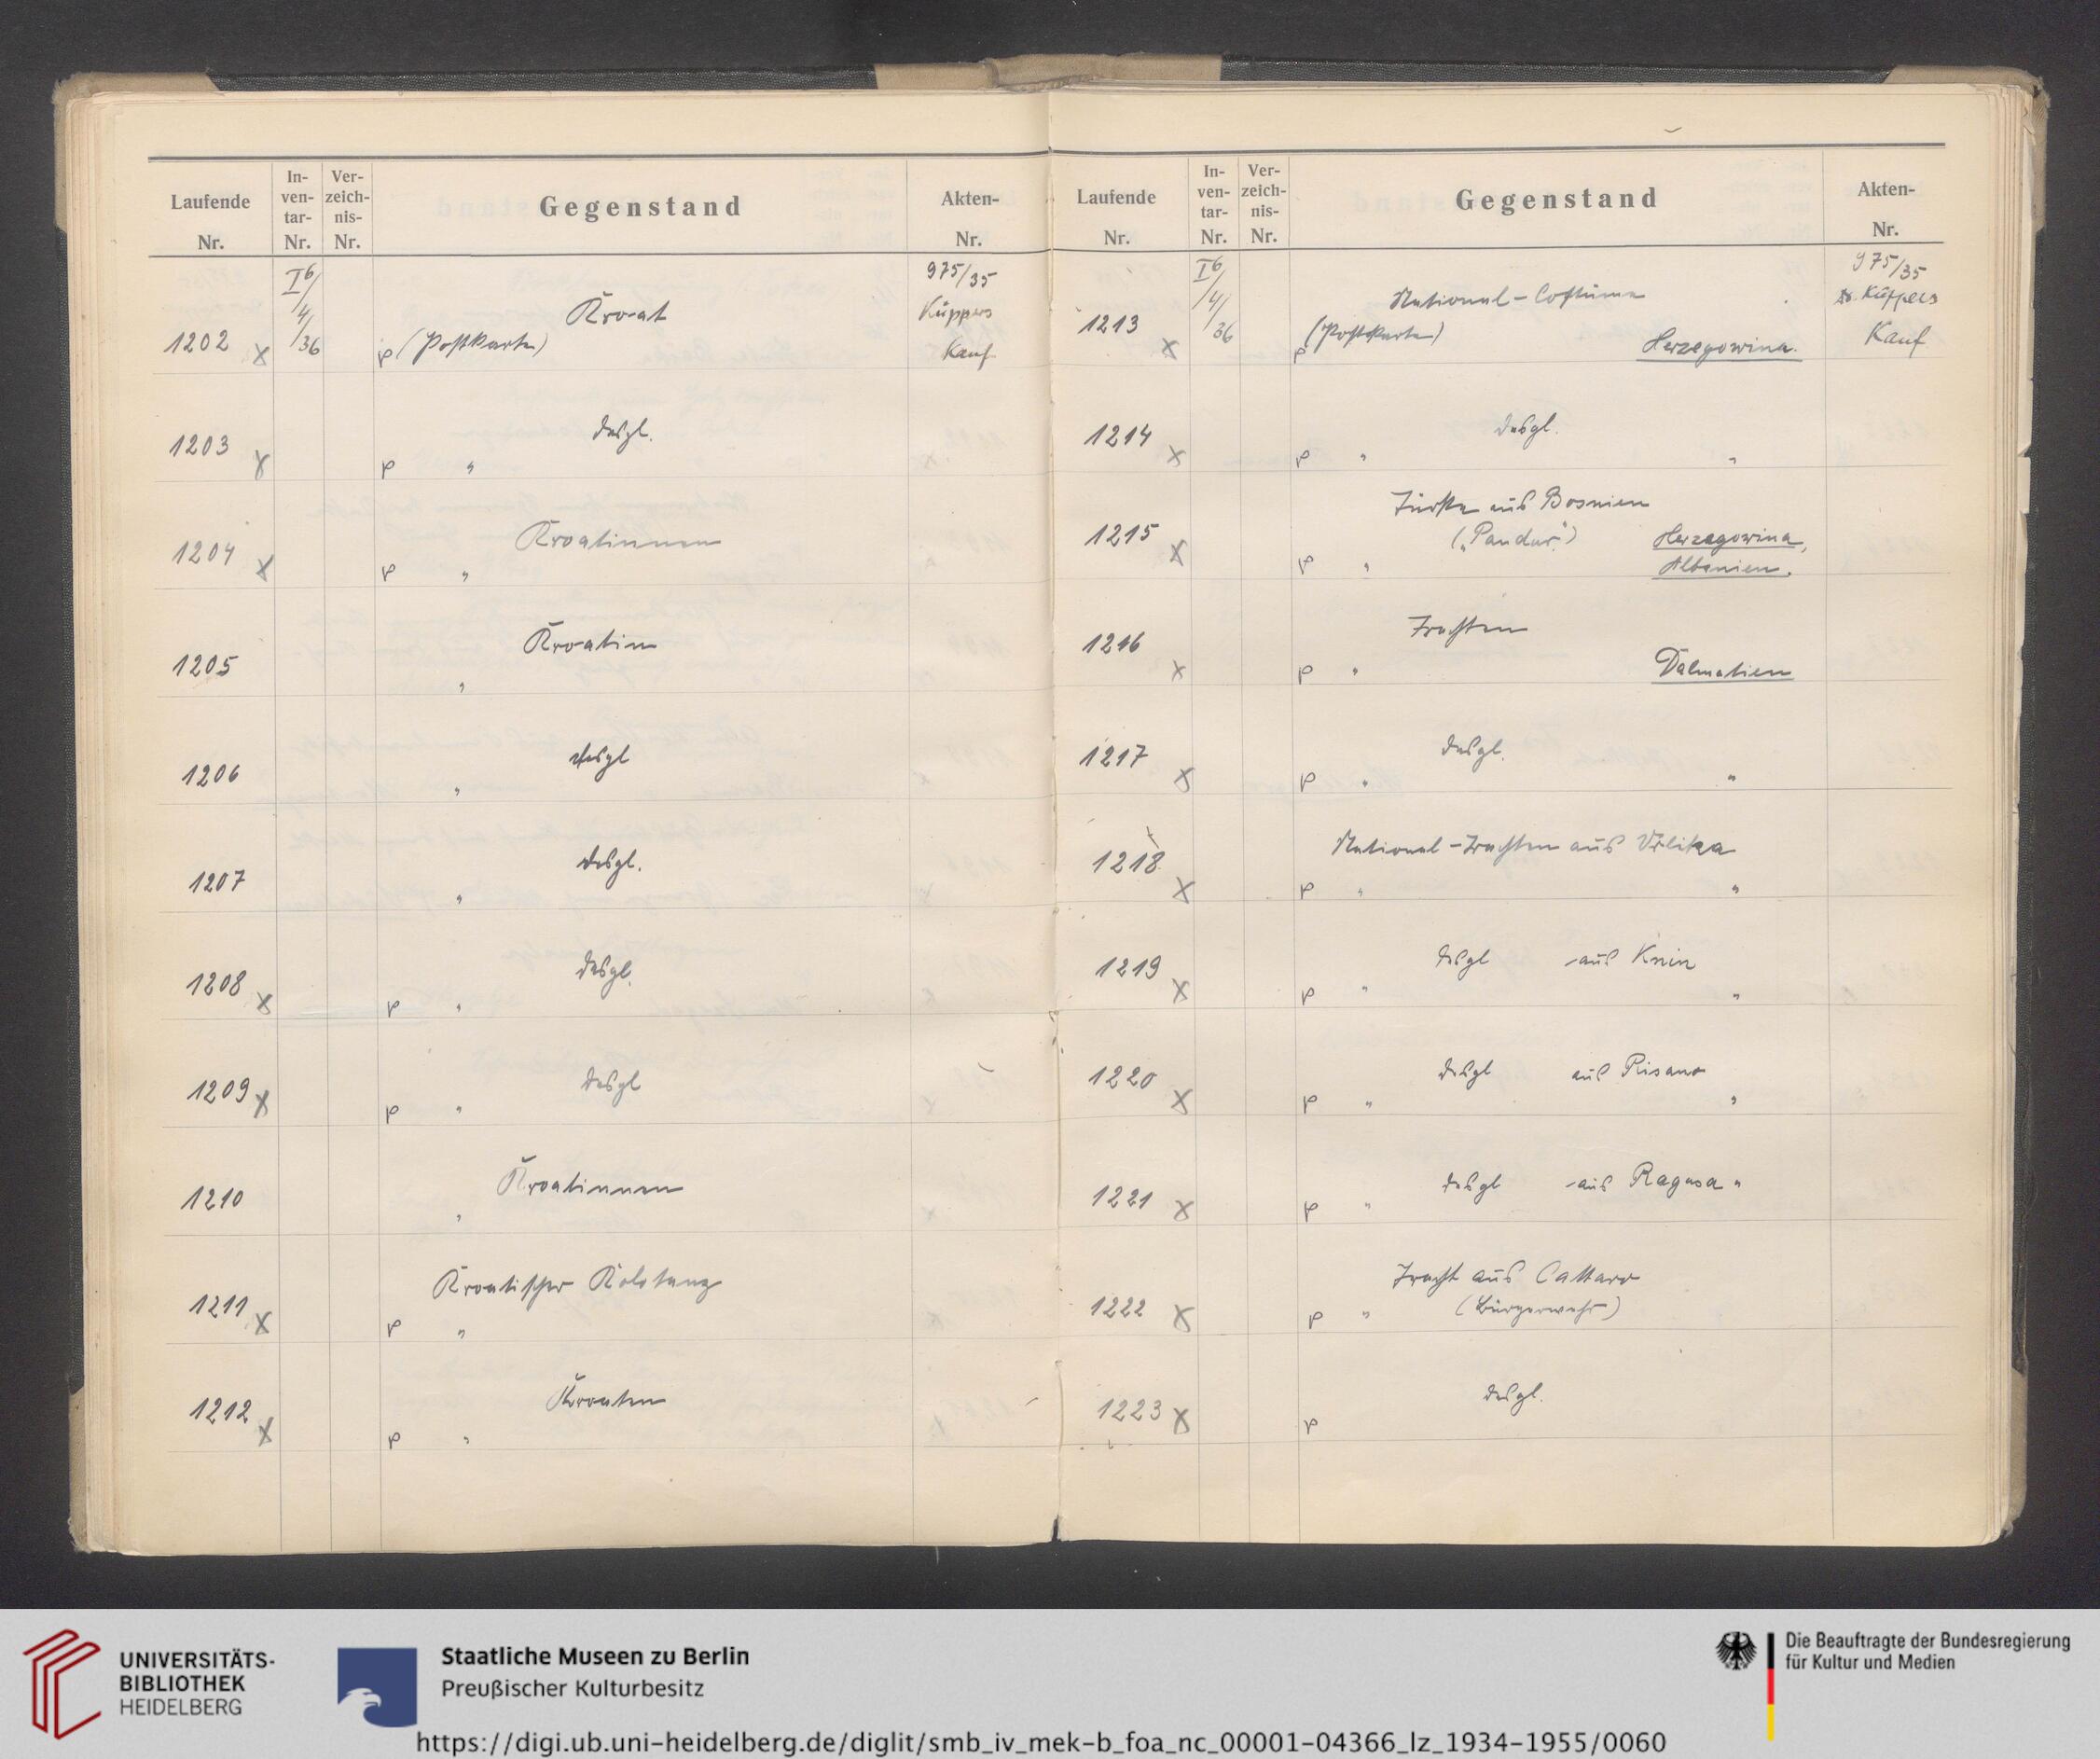 Laufende Nr.
In-ven-tar-Nr.
Ver-zeich-nis-Nr.
Gegenstand
Akten-Nr.
I 6/4/36
975/35
Küppers
Kauf
1202 x
Kroat
p (Postkarte)
1203 x
desgl.
p "
1204 x
Kroatinnen
p "
1205
Kroatin
"
1206
desgl
"
1207
desgl.
"
1208 x
desgl.
p "
1209 x
desgl
p "
1210
Kroatinnen
"
1211 x
Kroatischer Kolotanz
p "
1212 x
Kroaten
p "
Laufende Nr.
In-ven-tar-Nr.
Ver-zeich-nis-Nr.
Gegenstand
Akten-Nr.
I 6/4/36
975/35
Dr. Küppers
Kauf
1213 x
National-Costüme
(Postkarte)
p
Herzegowina.
1214 x
desgl.
p " "
1215 x
Türke aus Bosnien
("Pandur")
Herzegowina,
p "
Albanien.
1216 x
Trachten
p "
Dalmatien
1217 x
desgl.
p " "
1218 x
National-Trachten aus Vrlika
p " "
1219 x
desgl aus Knin
p " "
1220 x
desgl aus Risano
p " "
1221 x
desgl aus Ragusa "
p "
1222 x
Tracht aus Cattaro
p " (Bürgerwehr)
1223 x
desgl.
p
UNIVERSITÄTS-
BIBLIOTHEK
HEIDELBERG
Staatliche Museen zu Berlin
Preußischer Kulturbesitz
Die Beauftragte der Bundesregierung
für Kultur und Medien
https://digi.ub.uni-heidelberg.de/diglit/smb_iv_mek-b_foa_nc_00001-04366_lz_1934-1955/0060